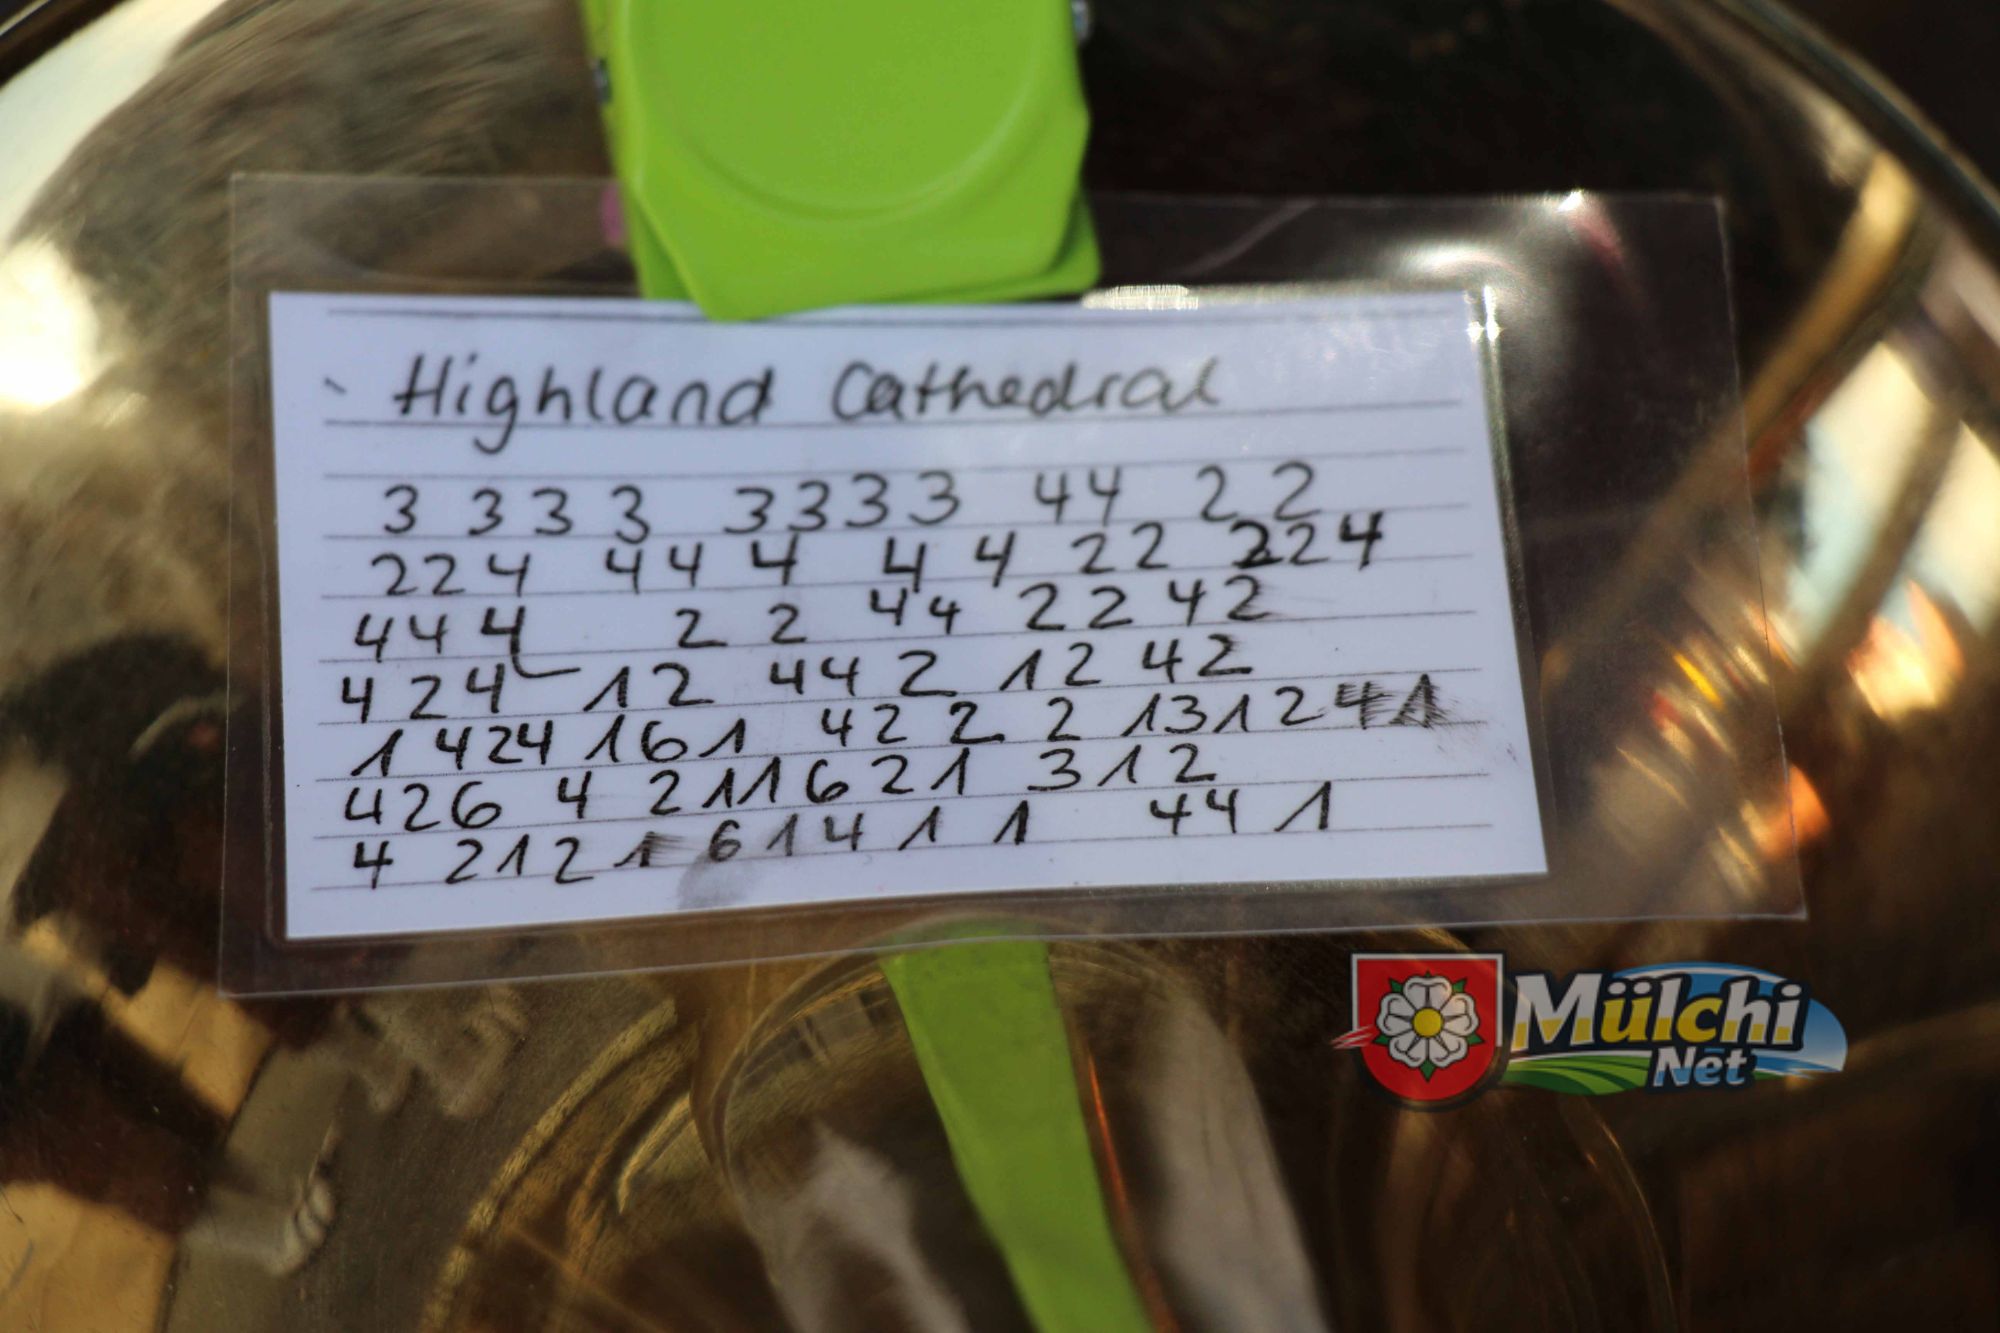 Highland Cathedral
3 3 3 3 3 3 3 3 4 4 2 2
2 2 4 4 4 4 4 4 2 2 2 2 4
4 4 4 2 2 4 4 2 2 4 2
4 2 4 1 2 4 4 2 1 2 4 2
1 4 2 4 1 6 1 4 2 2 2 1 3 1 2 4 1
4 2 6 4 2 1 1 6 2 1 3 1 2
4 2 1 2 1 6 1 4 1 1 4 4 1
Mülchi
Net